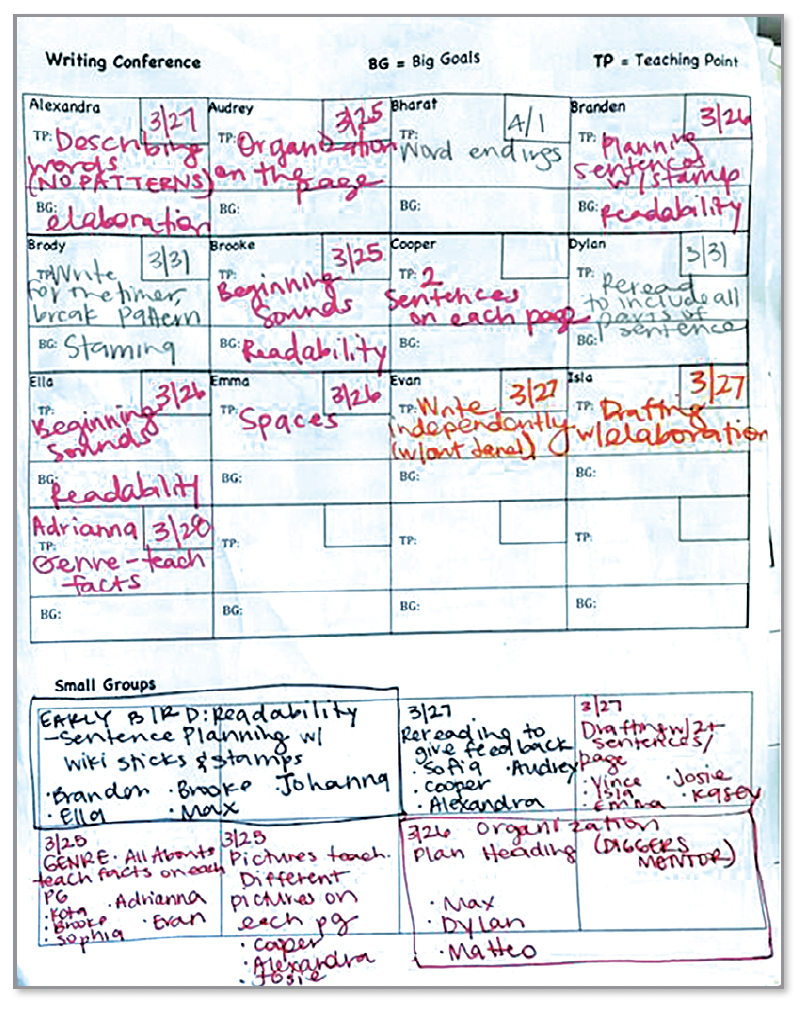 Writing Conference BG = Big Goals TP = Teaching Point
Alexandra 3/27
TP: Describing
words
(NO PATTERNS)
BG: elaboration
Audrey 3/25
TP: Organization
on the
page
BG:
Bharat 4/1
TP:
Word endings
BG:
Branden 3/26
TP: Planning
sentences
w/stamp
BG: Readability
Brody 3/31
TP: Write
for the timer,
break pattern
BG: Staming
Brooke 3/25
TP:
Beginning
Sounds
BG: Readability
Cooper
TP: 2
sentences
on each page
BG:
Dylan 3/31
TP: Reread
to include all
parts of
sentence
BG:
Ella 3/26
TP:
Beginning
sounds
BG: Readability
Emma 3/26
TP: Spaces
BG:
Evan 3/27
TP: Write
independently
(w/out
BG:
Isla 3/27
TP: Drafting
w/elaboration
BG:
Adrianna 3/28
TP:
Genre-teach
facts
BG:
TP:
BG:
TP:
BG:
TP:
BG:
Small Groups
EARLY BIRD: Readability
-Sentence Planning w/
wiki sticks & stamps
·Brandon ·Brooke ·Johanna
·Ella ·Max
3/27
Rereading to
give feedback
·Sofia ·Audrey
·cooper
·Alexandra
3/27
Drafting w/2+
sentences/
page
·Vince ·Josie
·Isla ·Kasey
·Emma
3/25
GENRE· All Abouts
teach facts on each
pg
·Kota ·Adrianna
·Brooke ·Evan
·Sophia
3/25
Pictures teach.
Different
pictures on
each pg
·Cooper
·Alexandra
·Josie
3/26 Organization
Plan Heading (DIGGERS
MENTOR)
·Max
·Dylan
·Matteo